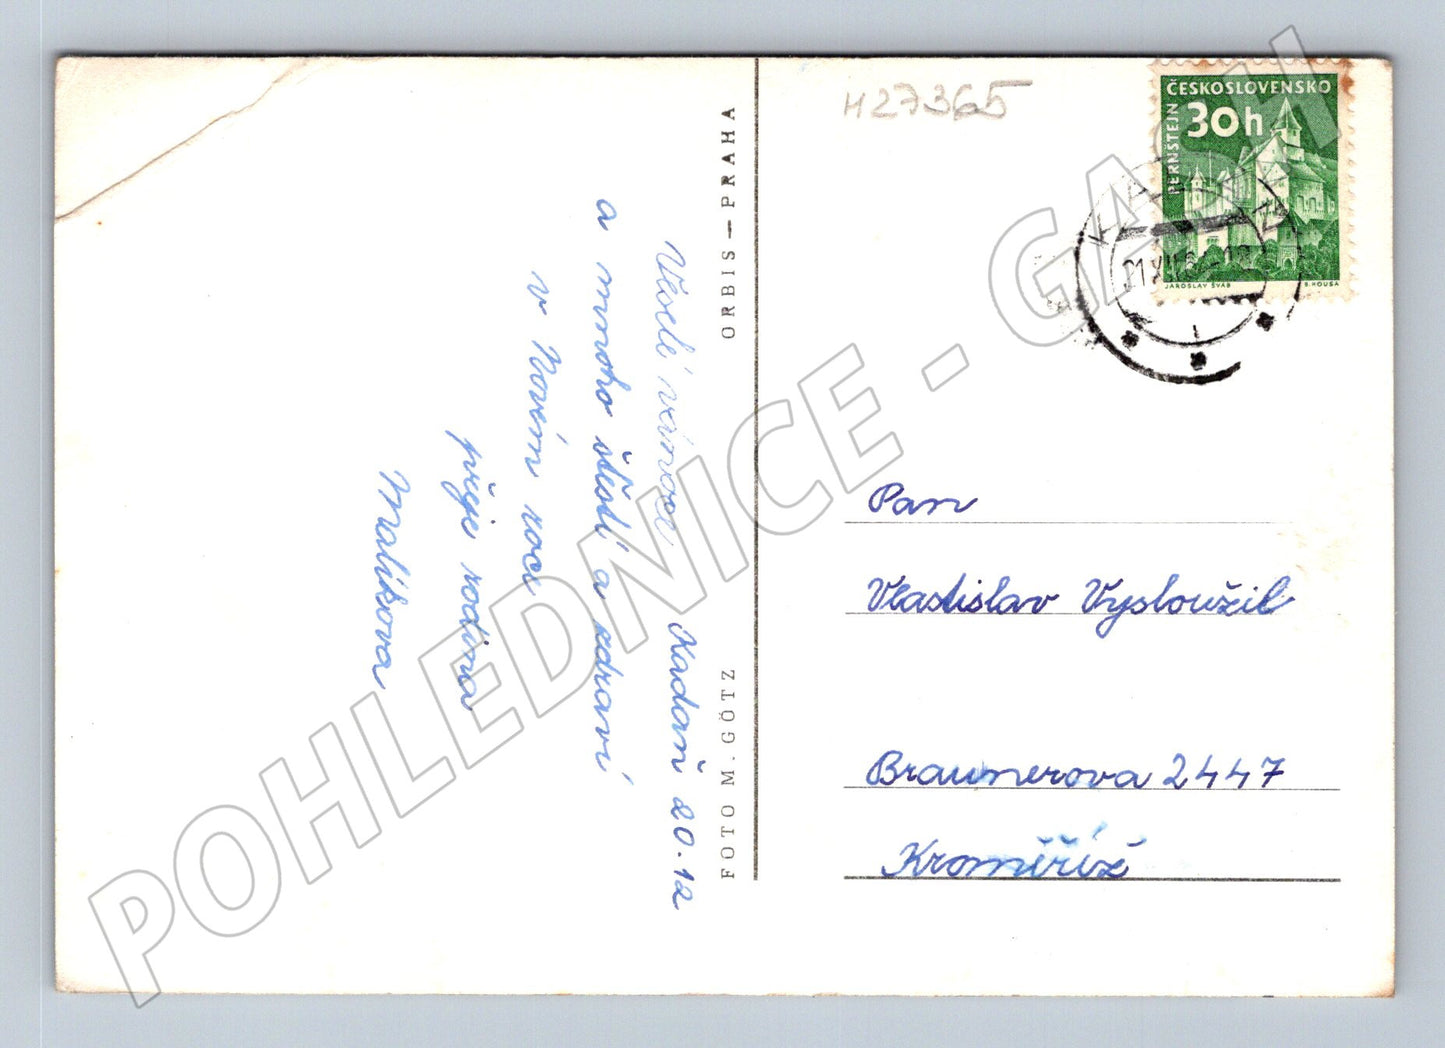 Veselé vánoce Kadaň 20.12
a mnoho štěstí a zdraví
v Novém roce
přeje rodina
Malíkova
ORBIS — PRAHA
FOTO M. GÖTZ
H27365
ČESKOSLOVENSKO
30h
PERNŠTEJN
JAROSLAV ŠVÁB
B. HOUSA
Pan
Vlastislav Vysloužil
Braunerova 2447
Kroměříž
POHLEDNICE - GASH